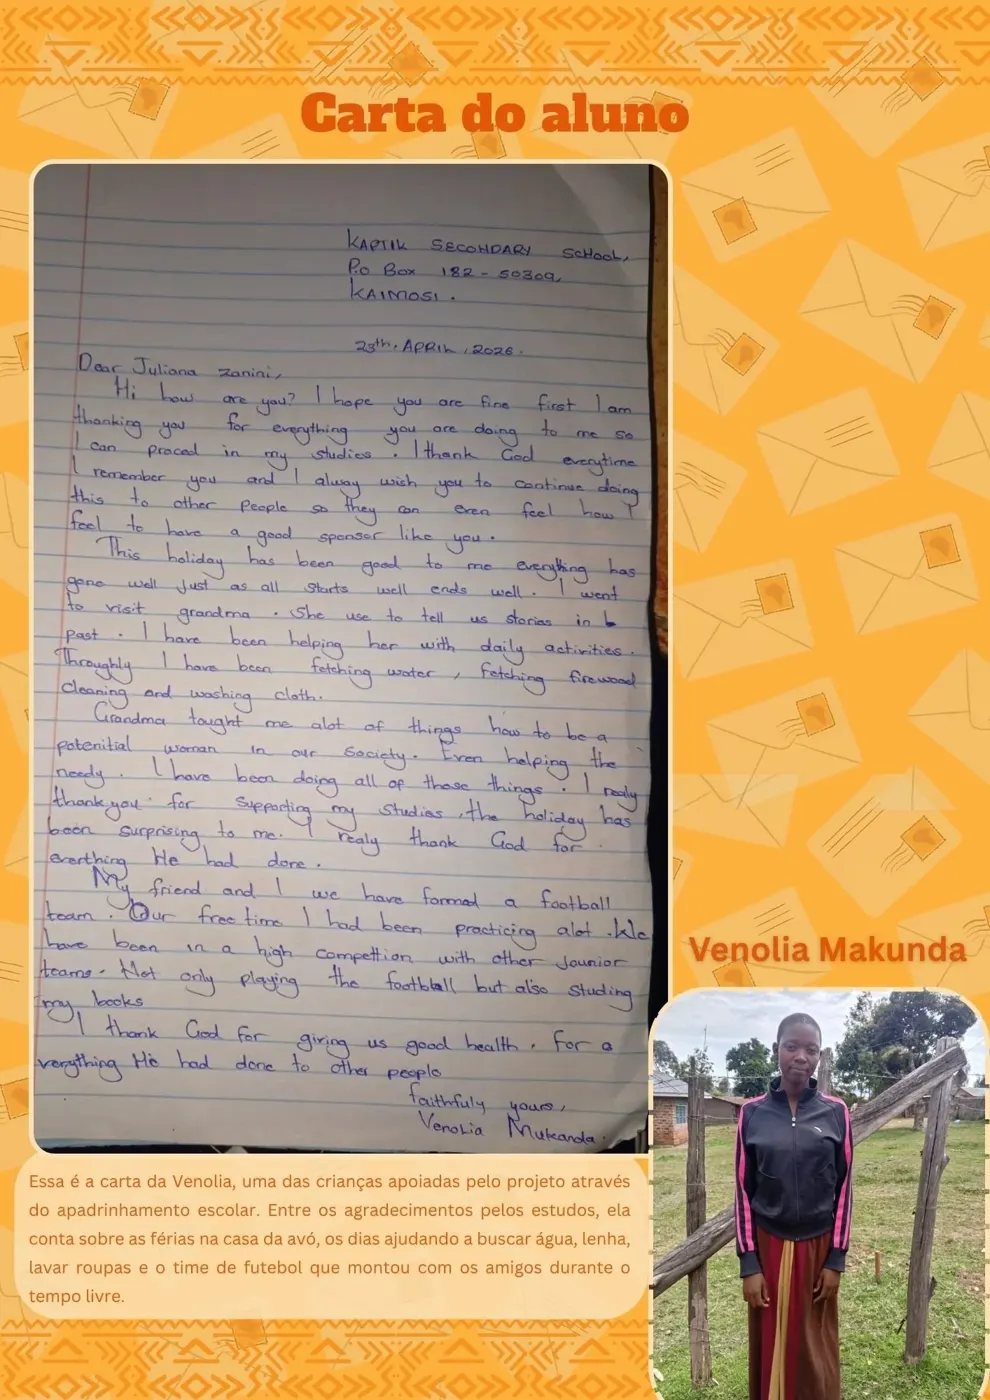 Carta do aluno
KAPTIK SECONDARY SCHOOL,
P.o Box 182 - 50309,
KAIMOSI.
23th. APRIL, 2026.
Dear Juliana zanini,
Hi how are you? I hope you are fine first I am
thanking you for everything you are doing to me so
I can proced in my studies. I thank God everytime
I remember you and I alway wish you to continue doing
this to other people so they can even feel how I
feel to have a good sponser like you.
This holiday has been good to me everything has
gone well Just as all starts well ends well. I went
to visit grandma. She use to tell us stories in
past. I have been helping her with daily activities.
Throughly I have been fetching water, fetching firewood
cleaning and washing cloth.
Grandma tought me alot of things how to be a
potenitial woman in our society. Even helping the
needy. I have been doing all of those things. I realy
thank you for supporting my studies, the holiday has
been surprising to me. I realy thank God for
everthing He had done.
My friend and I we have formed a football
team. Our free time I had been practicing alot. We
have been in a high compettion with other Jounior
teams. Not only playing the football but also studing
my books
I thank God for giving us good health. For a
verything He had done to other people
faithfuly yours,
Venolia Mukanda.
Venolia Makunda
Essa é a carta da Venolia, uma das crianças apoiadas pelo projeto através
do apadrinhamento escolar. Entre os agradecimentos pelos estudos, ela
conta sobre as férias na casa da avó, os dias ajudando a buscar água, lenha,
lavar roupas e o time de futebol que montou com os amigos durante o
tempo livre.